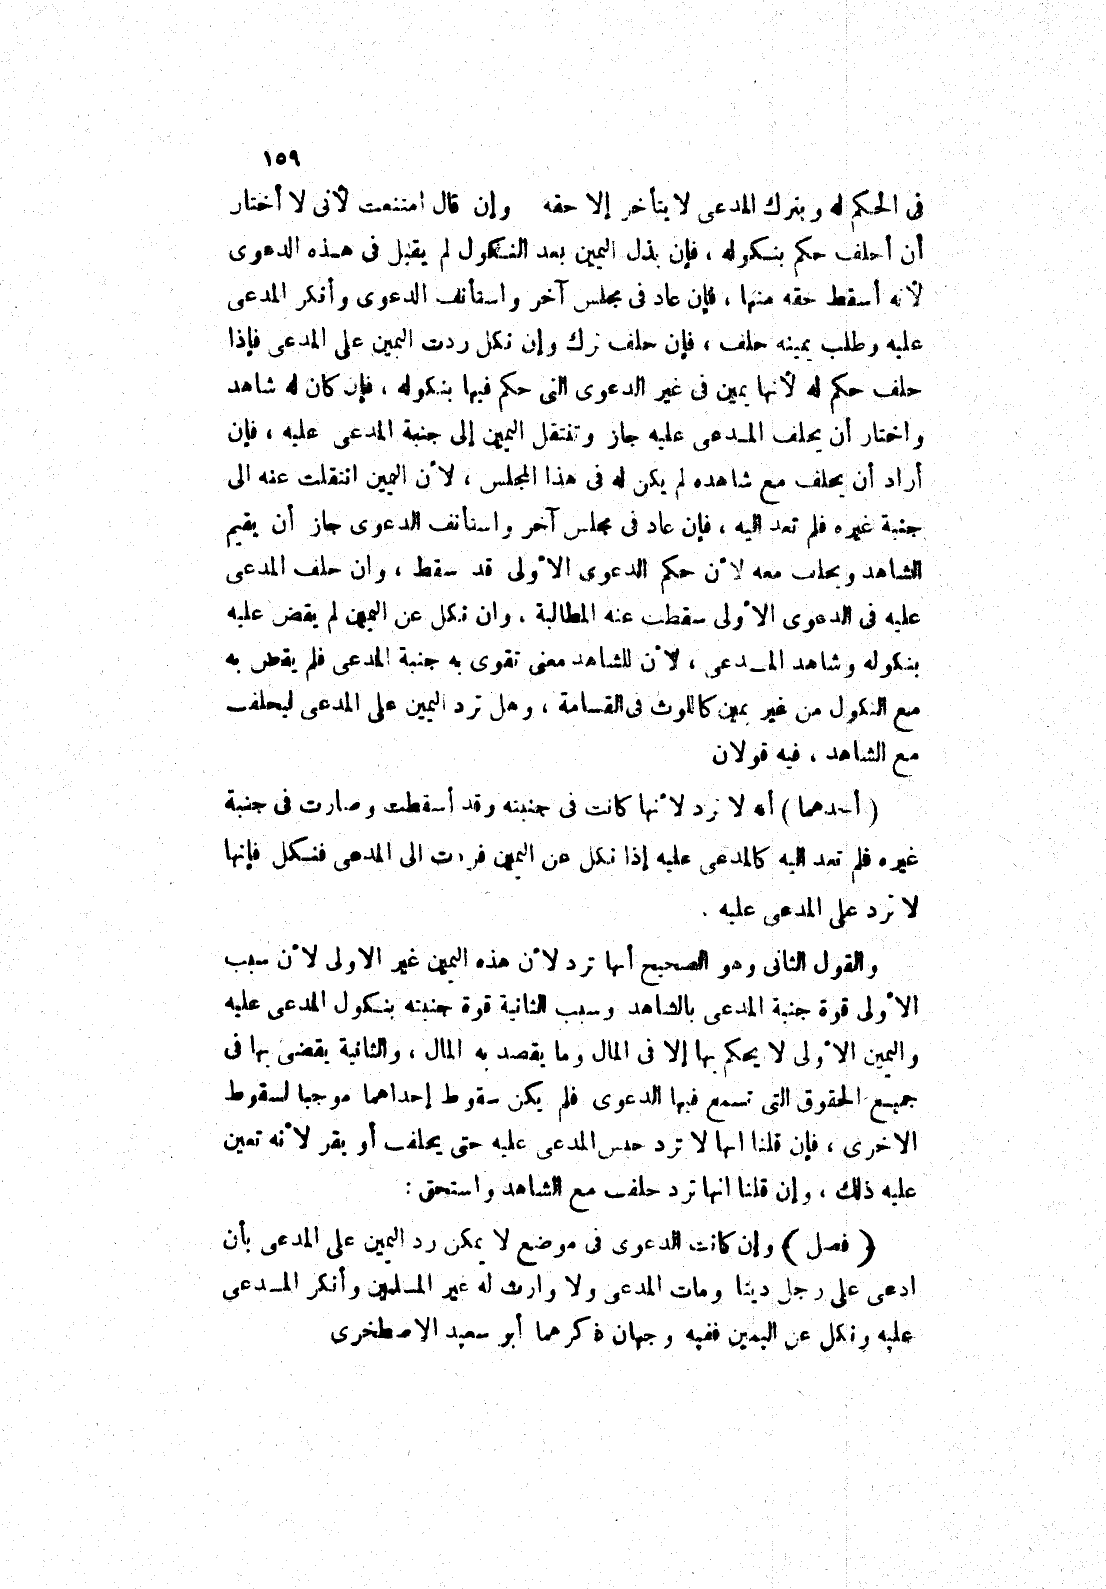 ١٥٩
فى الحكم له وبترك المدعى لا يتأخر إلا حقه وإن قال امتنعت لأنى لا أختار
أن أحلف حكم بنكوله ، فإن بذل اليمين بعد النكول لم يقبل فى هذه الدعوى
لأنه أسقط حقه منها ، فإن عاد فى مجلس آخر واستأنف الدعوى وأنكر المدعى
عليه وطلب يمينه حلف ، فإن حلف ترك وإن نكل ردت اليمين على المدعى فإذا
حلف حكم له لأنها يمين فى غير الدعوى التى حكم فيها بنكوله ، فإن كان له شاهد
واختار أن يحلف المدعى عليه جاز وتنتقل اليمين إلى جنبة المدعى عليه ، فإن
أراد أن يحلف مع شاهده لم يكن له فى هذا المجلس ، لأن اليمين انتقلت عنه الى
جنبة غيره فلم تعد اليه ، فإن عاد فى مجلس آخر واستأنف الدعوى جاز أن يقيم
الشاهد ويحلف معه لأن حكم الدعوى الأولى قد سقط ، وان حلف المدعى
عليه فى الدعوى الأولى سقطت عنه المطالبة ، وان نكل عن اليمين لم يقض عليه
بنكوله وشاهد المدعى ، لأن للشاهد معنى تقوى به جنبة المدعى فلم يقض به
مع النكول من غير يمين كاللوث فى القسامة ، وهل ترد اليمين على المدعى ليحلف
مع الشاهد ، فيه قولان
( أحدهما ) أنه لا ترد لأنها كانت فى جنبته وقد أسقطت وصارت فى جنبة
غيره فلم تعد اليه كالمدعى عليه إذا نكل عن اليمين فردت الى المدعى فنكل فإنها
لا ترد على المدعى عليه .
والقول الثانى وهو الصحيح أنها ترد لأن هذه اليمين غير الاولى لأن سبب
الأولى قوة جنبة المدعى بالشاهد وسبب الثانية قوة جنبته بنكول المدعى عليه
واليمين الأولى لا يحكم بها إلا فى المال وما يقصد به المال ، والثانية يقضى بها فى
جميع الحقوق التى تسمع فيها الدعوى فلم يكن سقوط إحداهما موجبا لسقوط
الاخرى ، فإن قلنا انها لا ترد حبس المدعى عليه حتى يحلف أو يقر لأنه تعين
عليه ذلك ، وإن قلنا انها ترد حلف مع الشاهد واستحق :
( فصل ) وإن كانت الدعوى فى موضع لا يمكن رد اليمين على المدعى بأن
ادعى على رجل دينا ومات المدعى ولا وارث له غير المسلمين وأنكر المدعى
عليه ونكل عن اليمين ففيه وجهان ذكرهما أبو سعيد الاصطخرى